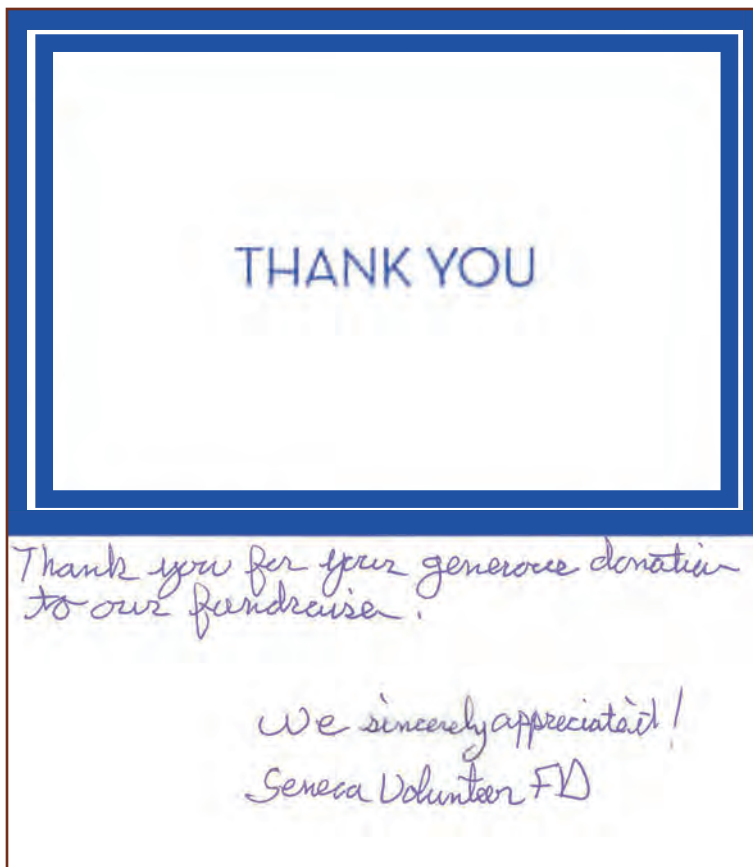 THANK YOU
Thank you for your generous donation
to our fundraiser.
We sincerely appreciate it!
Seneca Volunteer FD